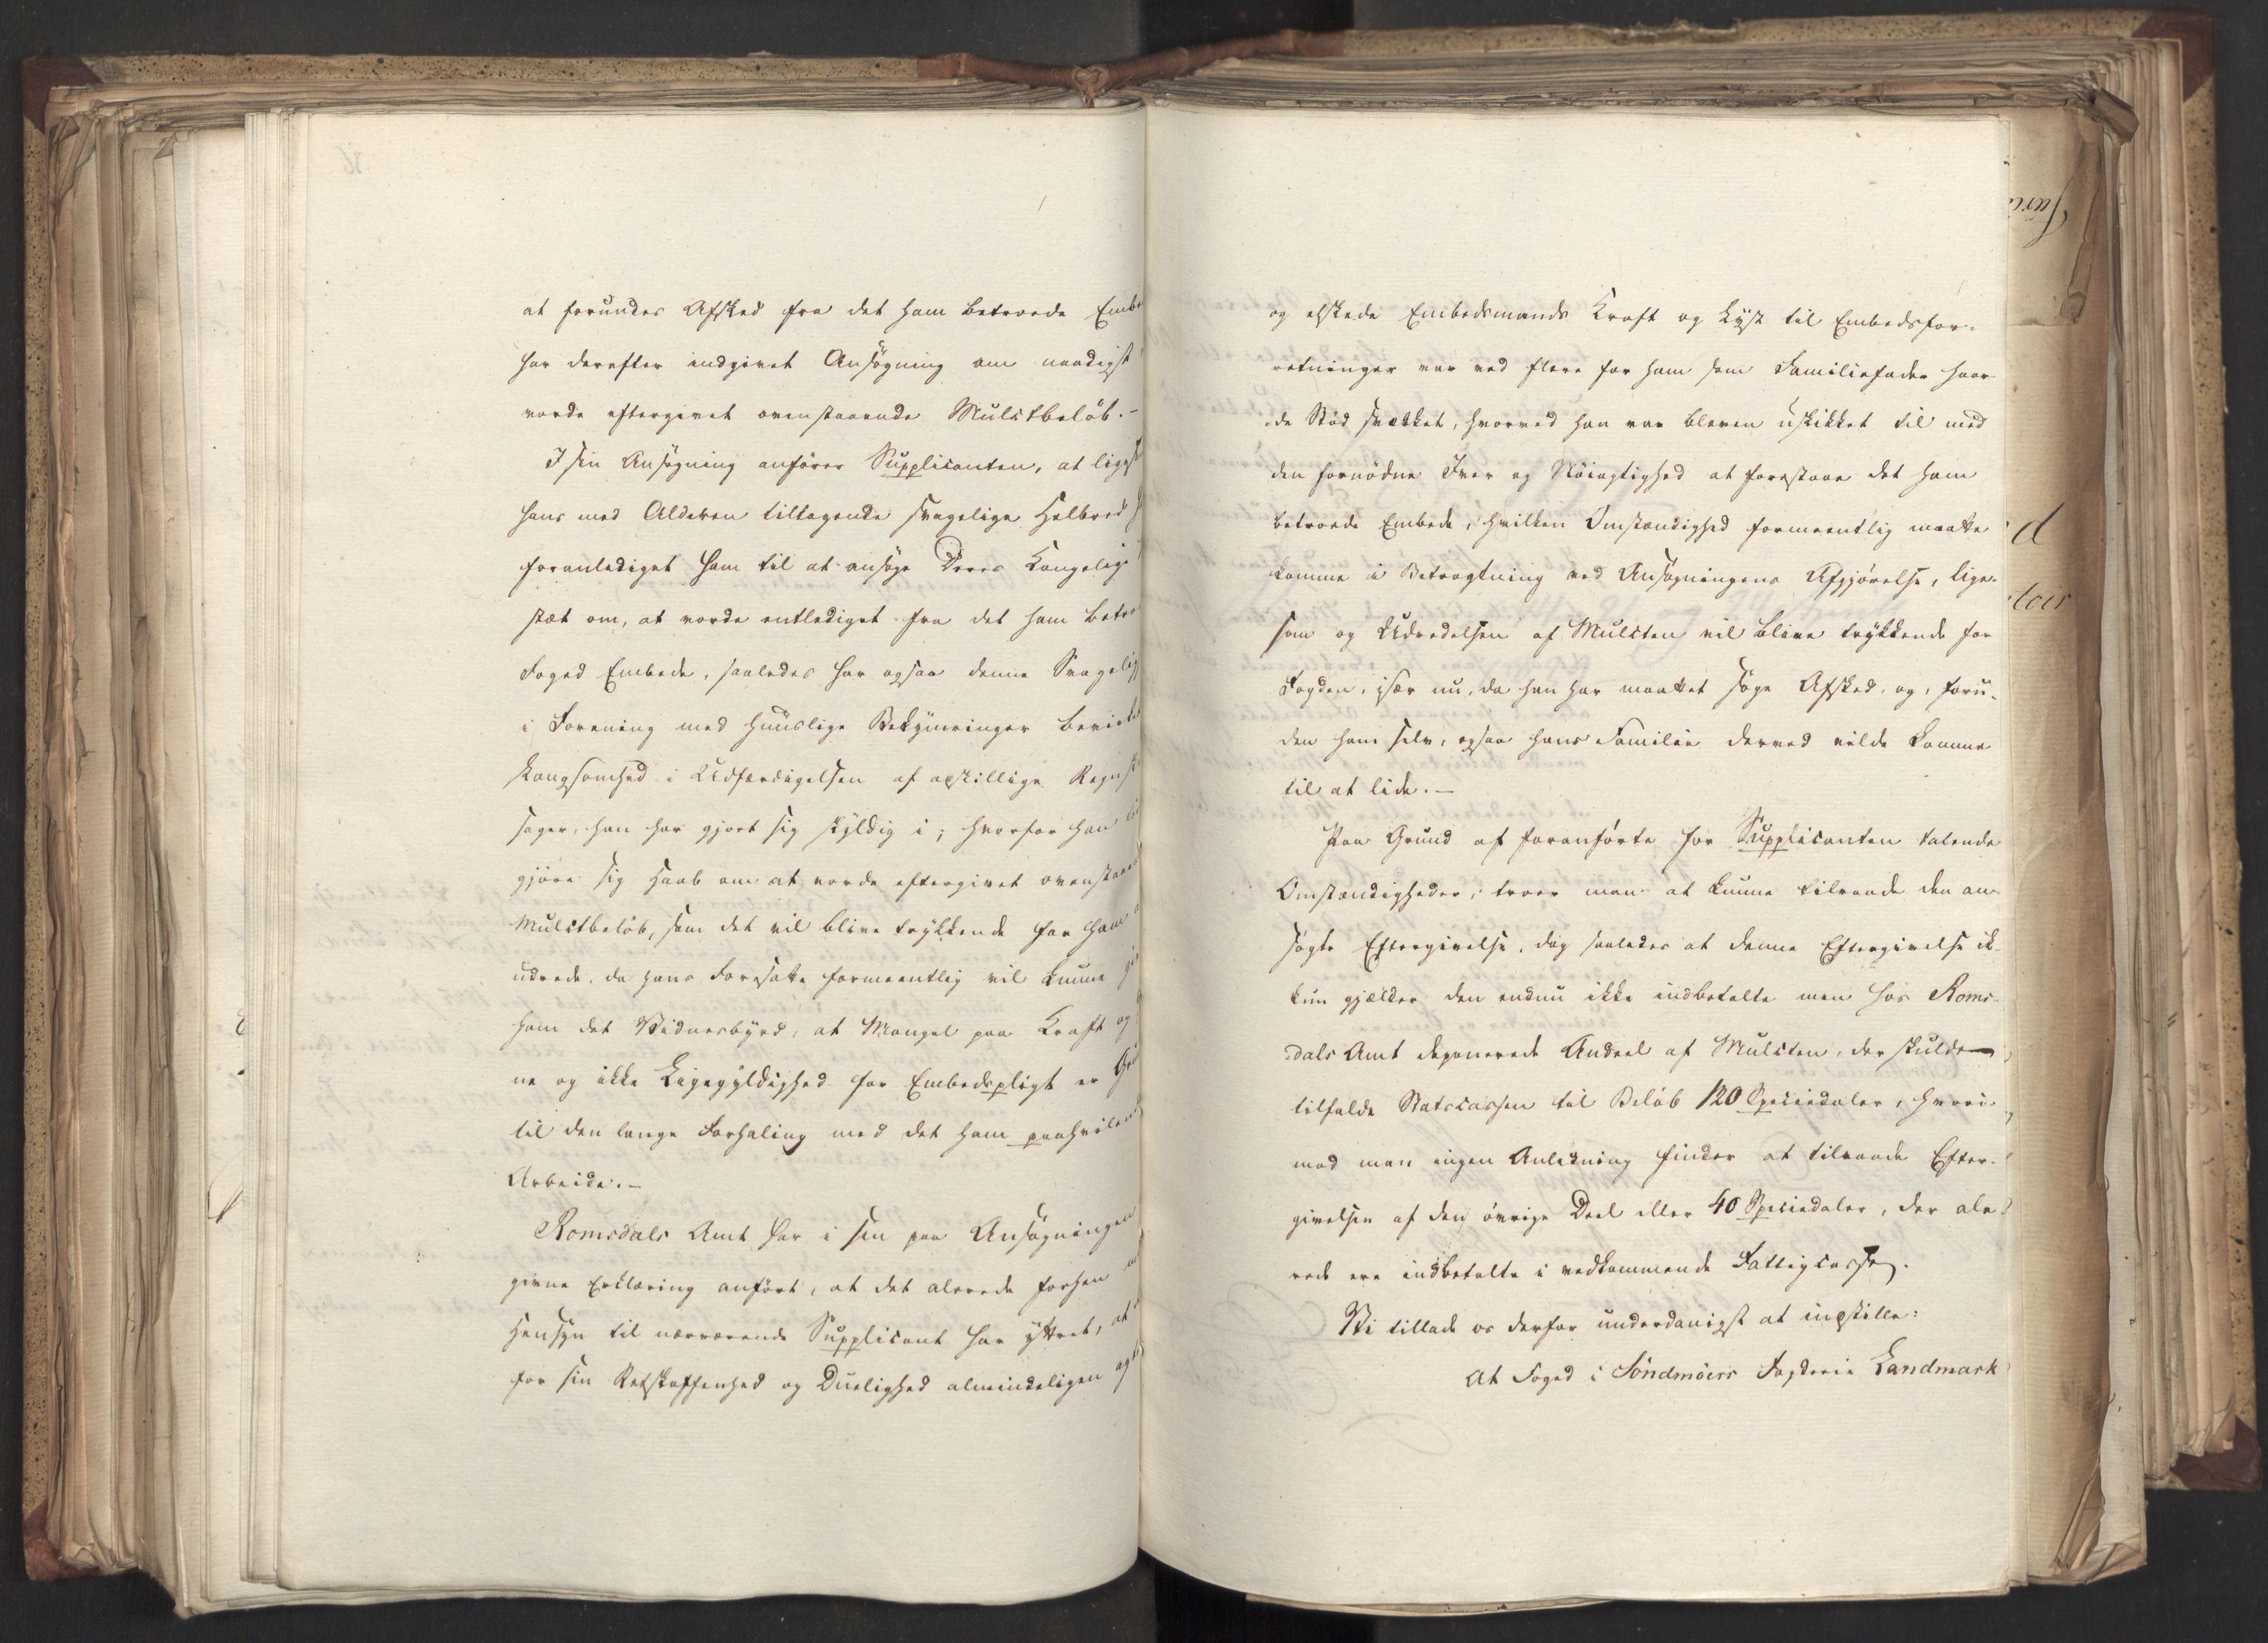 at forundes Afsked fra det ham betroede Embe
har derefter indgivet Ansøgning om naadigst
vorde eftergivet ovenstaaende Mulctbeløb.-
I sin Ansøgning anfører Supplicanten, at ligesom
hans med Alderen tiltagende svagelige Helbred
foranlediget ham til at ansøge Deres Kongelige
stæt om, at vorde entlediget fra det ham betro
Foged Embede, saaledes har ogsaa denne Svagelig
i Forening med huuslige Bekymringer bevirket
Langsomhed i Udfærdigelsen af adskillige Regnsk
sager, han har gjort sig skyldig i; hvorfor han
gjøre sig Haab om at vorde eftergivet ovenstaaen
Mulctbeløb, som det vil blive trykkende for ham
udrede, da hans Foresatte formeentlig vil kunne gi
ham det Vidnesbyrd, at Mangel paa Kraft og
ne og ikke Ligegyldighed for Embedspligt er Gr
til den lange Forhaling med det ham paahvilend
Arbeide.-
Romsdals Amt har i sin paa Ansøgningen
givne Erklæring anført, at det alerede forhen
Hensyn til nærværende Supplicant har yttret, at
for sin Retskaffenhed og Duelighed almindeligen ag
og elskede Embedsmands Kraft og Lyst til Embedsfor-
retninger var ved flere for ham som Familiefader haar-
de Stød svækket, hvorved han var bleven uskikket til med
den fornødne Iver og Nøiagtighed at forestaae det ham
betroede Embede, hvilken Omstændighed formeentlig maatte
komme i Betragtning ved Ansøgningens Afgjørelse, lige-
som og Udredelsen af Mulcten vil blive trykkende for
Fogden, især nu, da han har maattet søge Afsked, og, foru-
den ham selv, ogsaa hans Familie derved vilde komme
til at lide.-
Paa Grund af foranførte for Supplicanten talende
Omstændigheder, troer man at kunne tilraade den an-
søgte Eftergivelse, dog saaledes at denne Eftergivelse ik-
kun gjælder den endnu ikke indbetalte men hos Roms-
dals Amt deponerede Andeel af Mulcten, der skulde
tilfalde Statscassen til Beløb 120 Speciedaler, hvori-
mod man ingen Anledning finder at tilraade Efter-
givelsen af den øvrige Deel eller 40 Speciedaler, der ale-
rede ere indbetalte i vedkommende Fattigcasse.
Vi tillade os derfor underdanigst at indstille:
At Foged i Søndmøers Fogderie Landmark